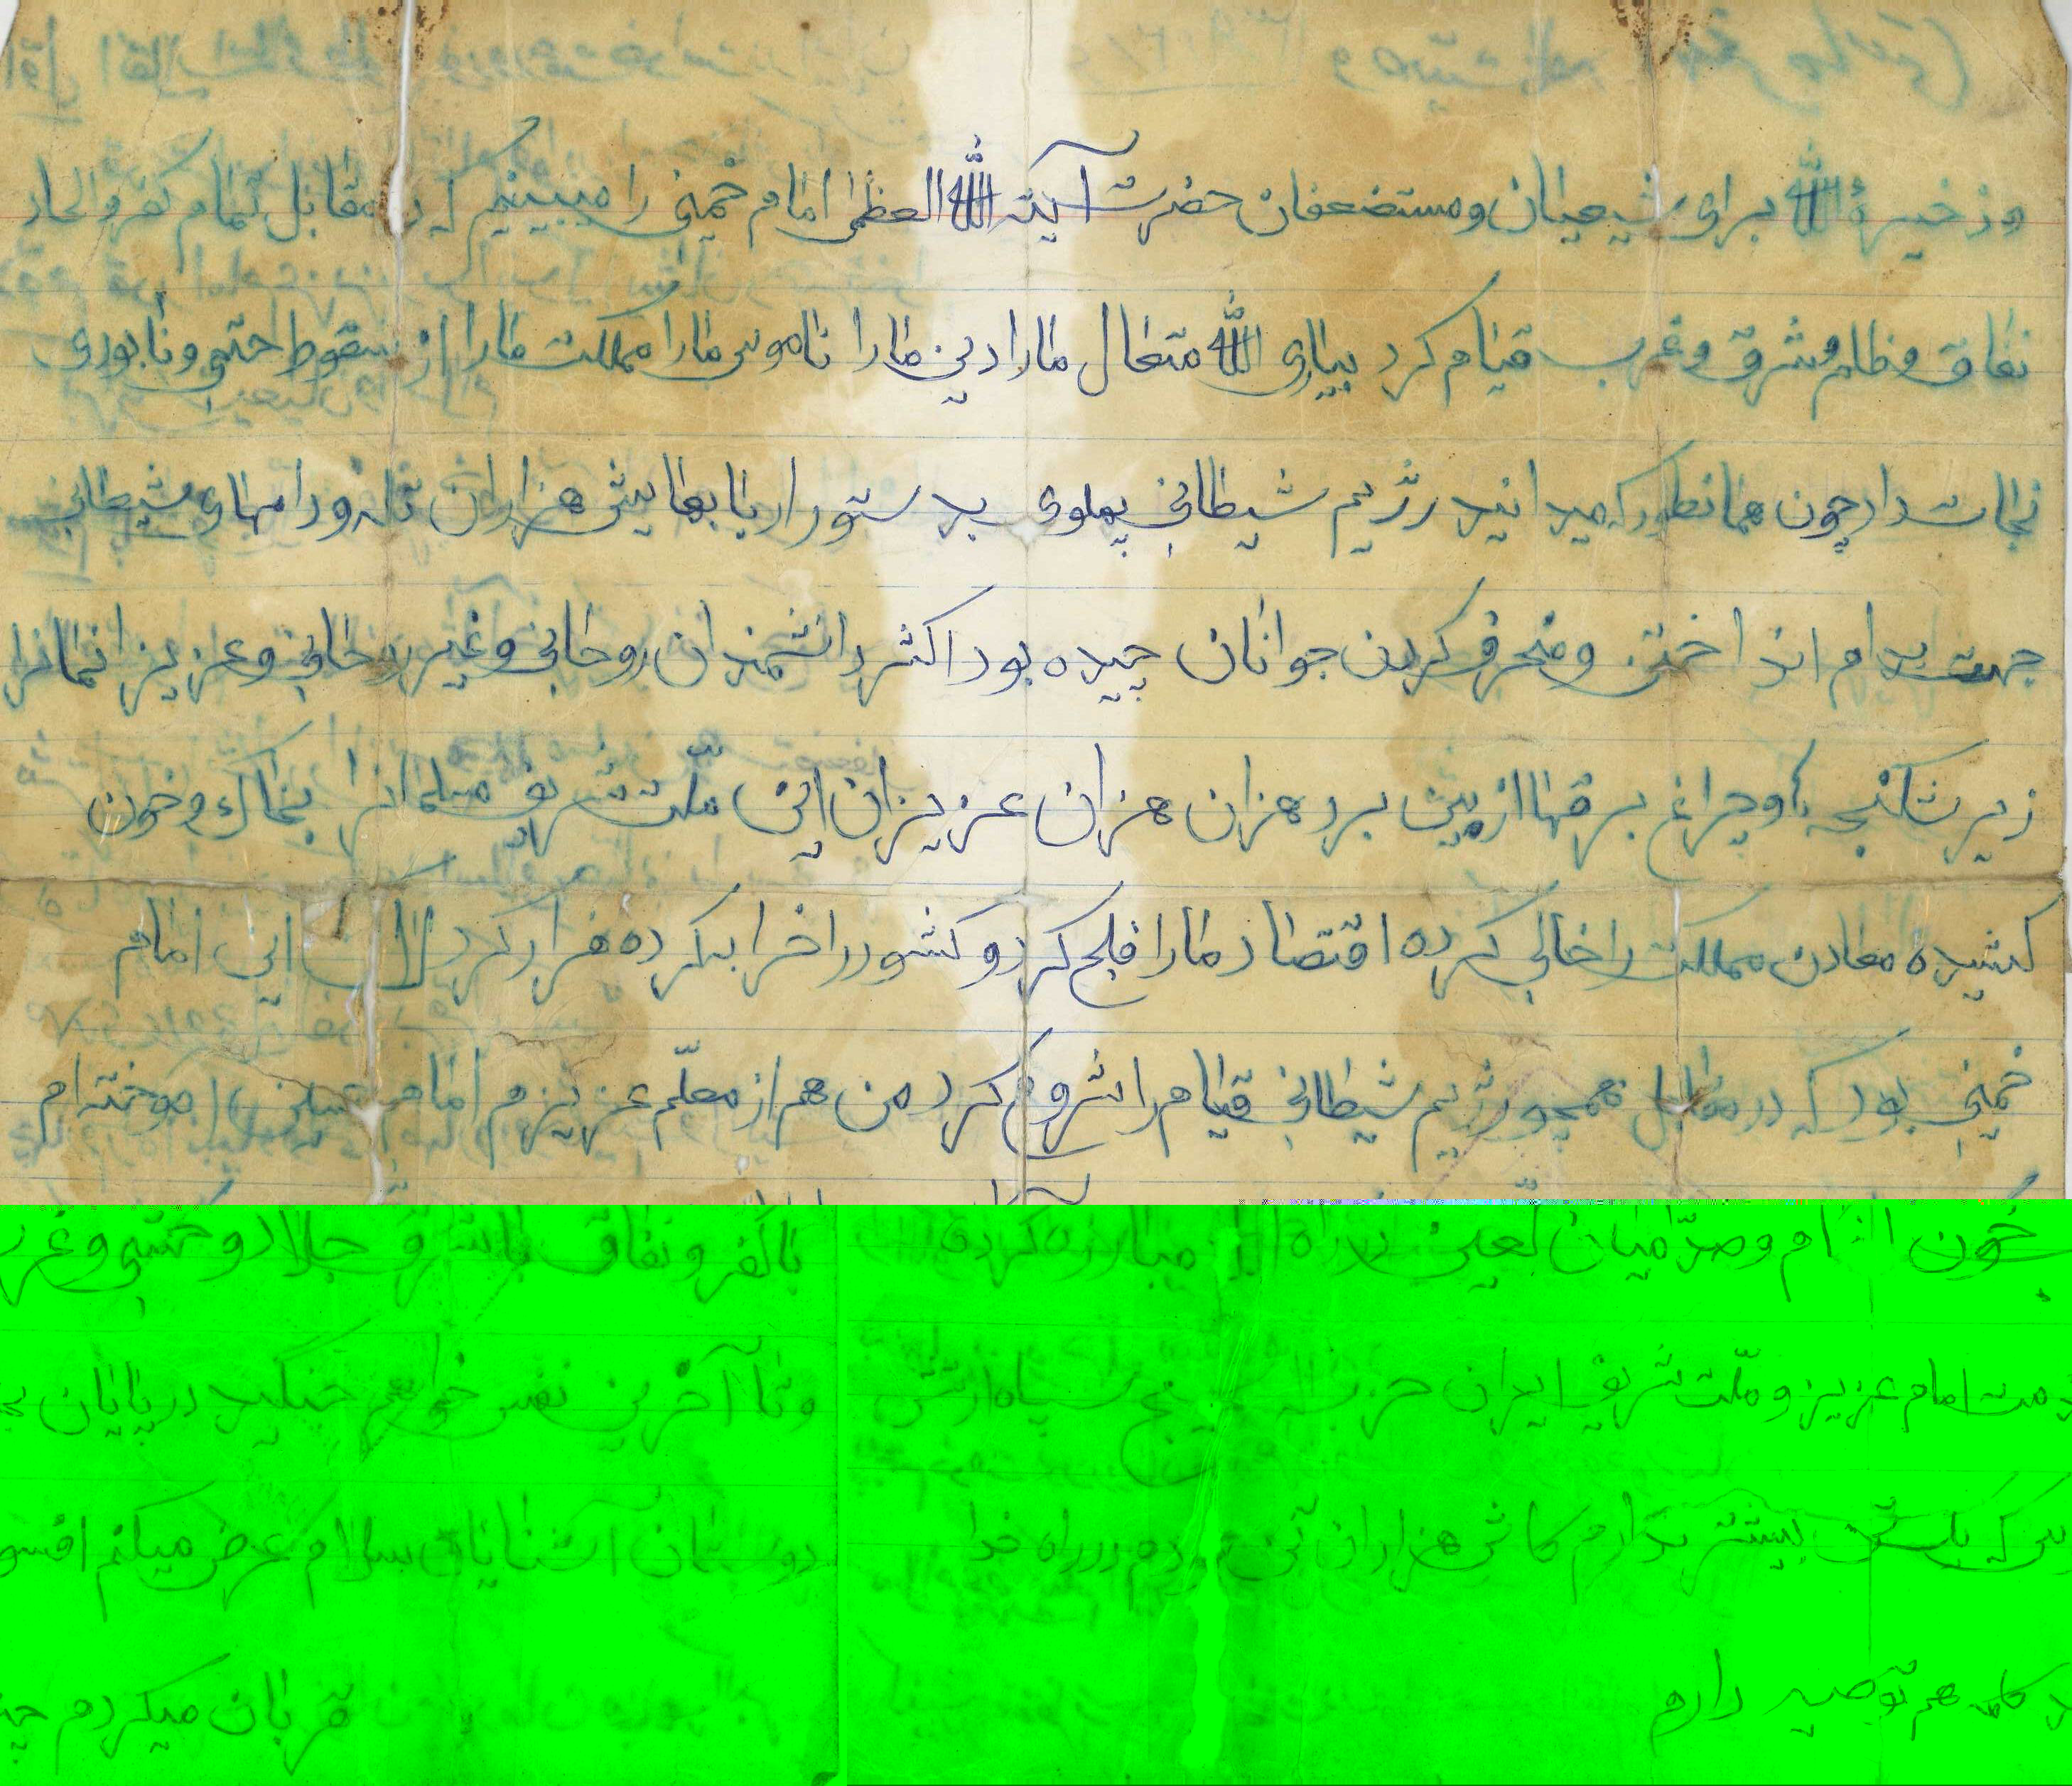 و ذخیرهٔ الله برای شیعیان و مستضعفان حضرت آیته الله العظمی امام خمینی را میبینیم که در مقابل تمام کفر و الحاد
نفاق و ظلم و شرق و غرب قیام کرد بیاری الله متعال ما را دین ما را ناموس ما را مملکت ما را از سقوط حتمی و نابودی
نجات داد چون همانطور که میدانید رژیم شیطانی پهلوی بدستور اربابهایش هزاران تله و دامهای شیطانی
جهت بدام انداختن و منحرف کردن جوانان چیده بود اکثر دانشمندان روحانی و غیر روحانی و عزیزانمانرا
زیر شکنجه با و چراغ برقها از بین برد هزان هزان عزیزان این ملّت شریف مسلمانرا بخاک و خون
کشیده معادن مملکت را خالی کرده اقتصاد ما را فلج کرد و کشور را خرابکرده فرار کرد این امام
خمینی بود که در مقابل همچو رژیم شیطانی قیام را شروع کرد من هم از معلّم عزیزم امام آموخته ام
خون و صدّامیان لعین در راه مبارزه کرده با کفر و نفاق با شرق جلاد وحشی و
امام عزیز و ملّت شریف ایران حزب سپاه ارتش و تا آخرین نفس خواهم جنگید در پایان
که یک بیشتر ندارم کاش هزاران در راه خدا دوستان آشنایان سلام عرض میکنم
هم توصیه دارم قربان میکردم